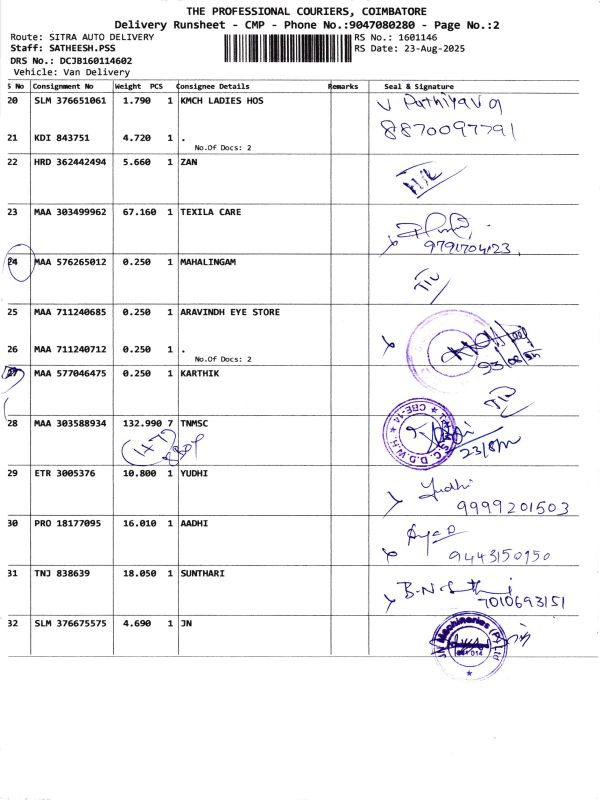 THE PROFESSIONAL COURIERS, COIMBATORE
Delivery Runsheet - CMP - Phone No.:9047080280 - Page No.:2
Route: SITRA AUTO DELIVERY RS No.: 1601146
Staff: SATHEESH.PSS RS Date: 23-Aug-2025
DRS No.: DCJB160114602
Vehicle: Van Delivery
S No Consignment No Weight PCS Consignee Details Remarks Seal & Signature
20 SLM 376651061 1.790 1 KMCH LADIES HOS
8870097791
21 KDI 843751 4.720 1 .
No.Of Docs: 2
22 HRD 362442494 5.660 1 ZAN
23 MAA 303499962 67.160 1 TEXILA CARE
9791704123
24 MAA 576265012 0.250 1 MAHALINGAM
25 MAA 711240685 0.250 1 ARAVINDH EYE STORE
26 MAA 711240712 0.250 1 .
No.Of Docs: 2
27 MAA 577046475 0.250 1 KARTHIK
28 MAA 303588934 132.990 7 TNMSC
CBE-14
23/8/25
29 ETR 3005376 10.800 1 YUDHI
Yudhi
9999201503
30 PRO 18177095 16.010 1 AADHI
9443150950
31 TNJ 838639 18.050 1 SUNTHARI
7010693151
32 SLM 376675575 4.690 1 JN
JN Machineries (P) Ltd
641 014